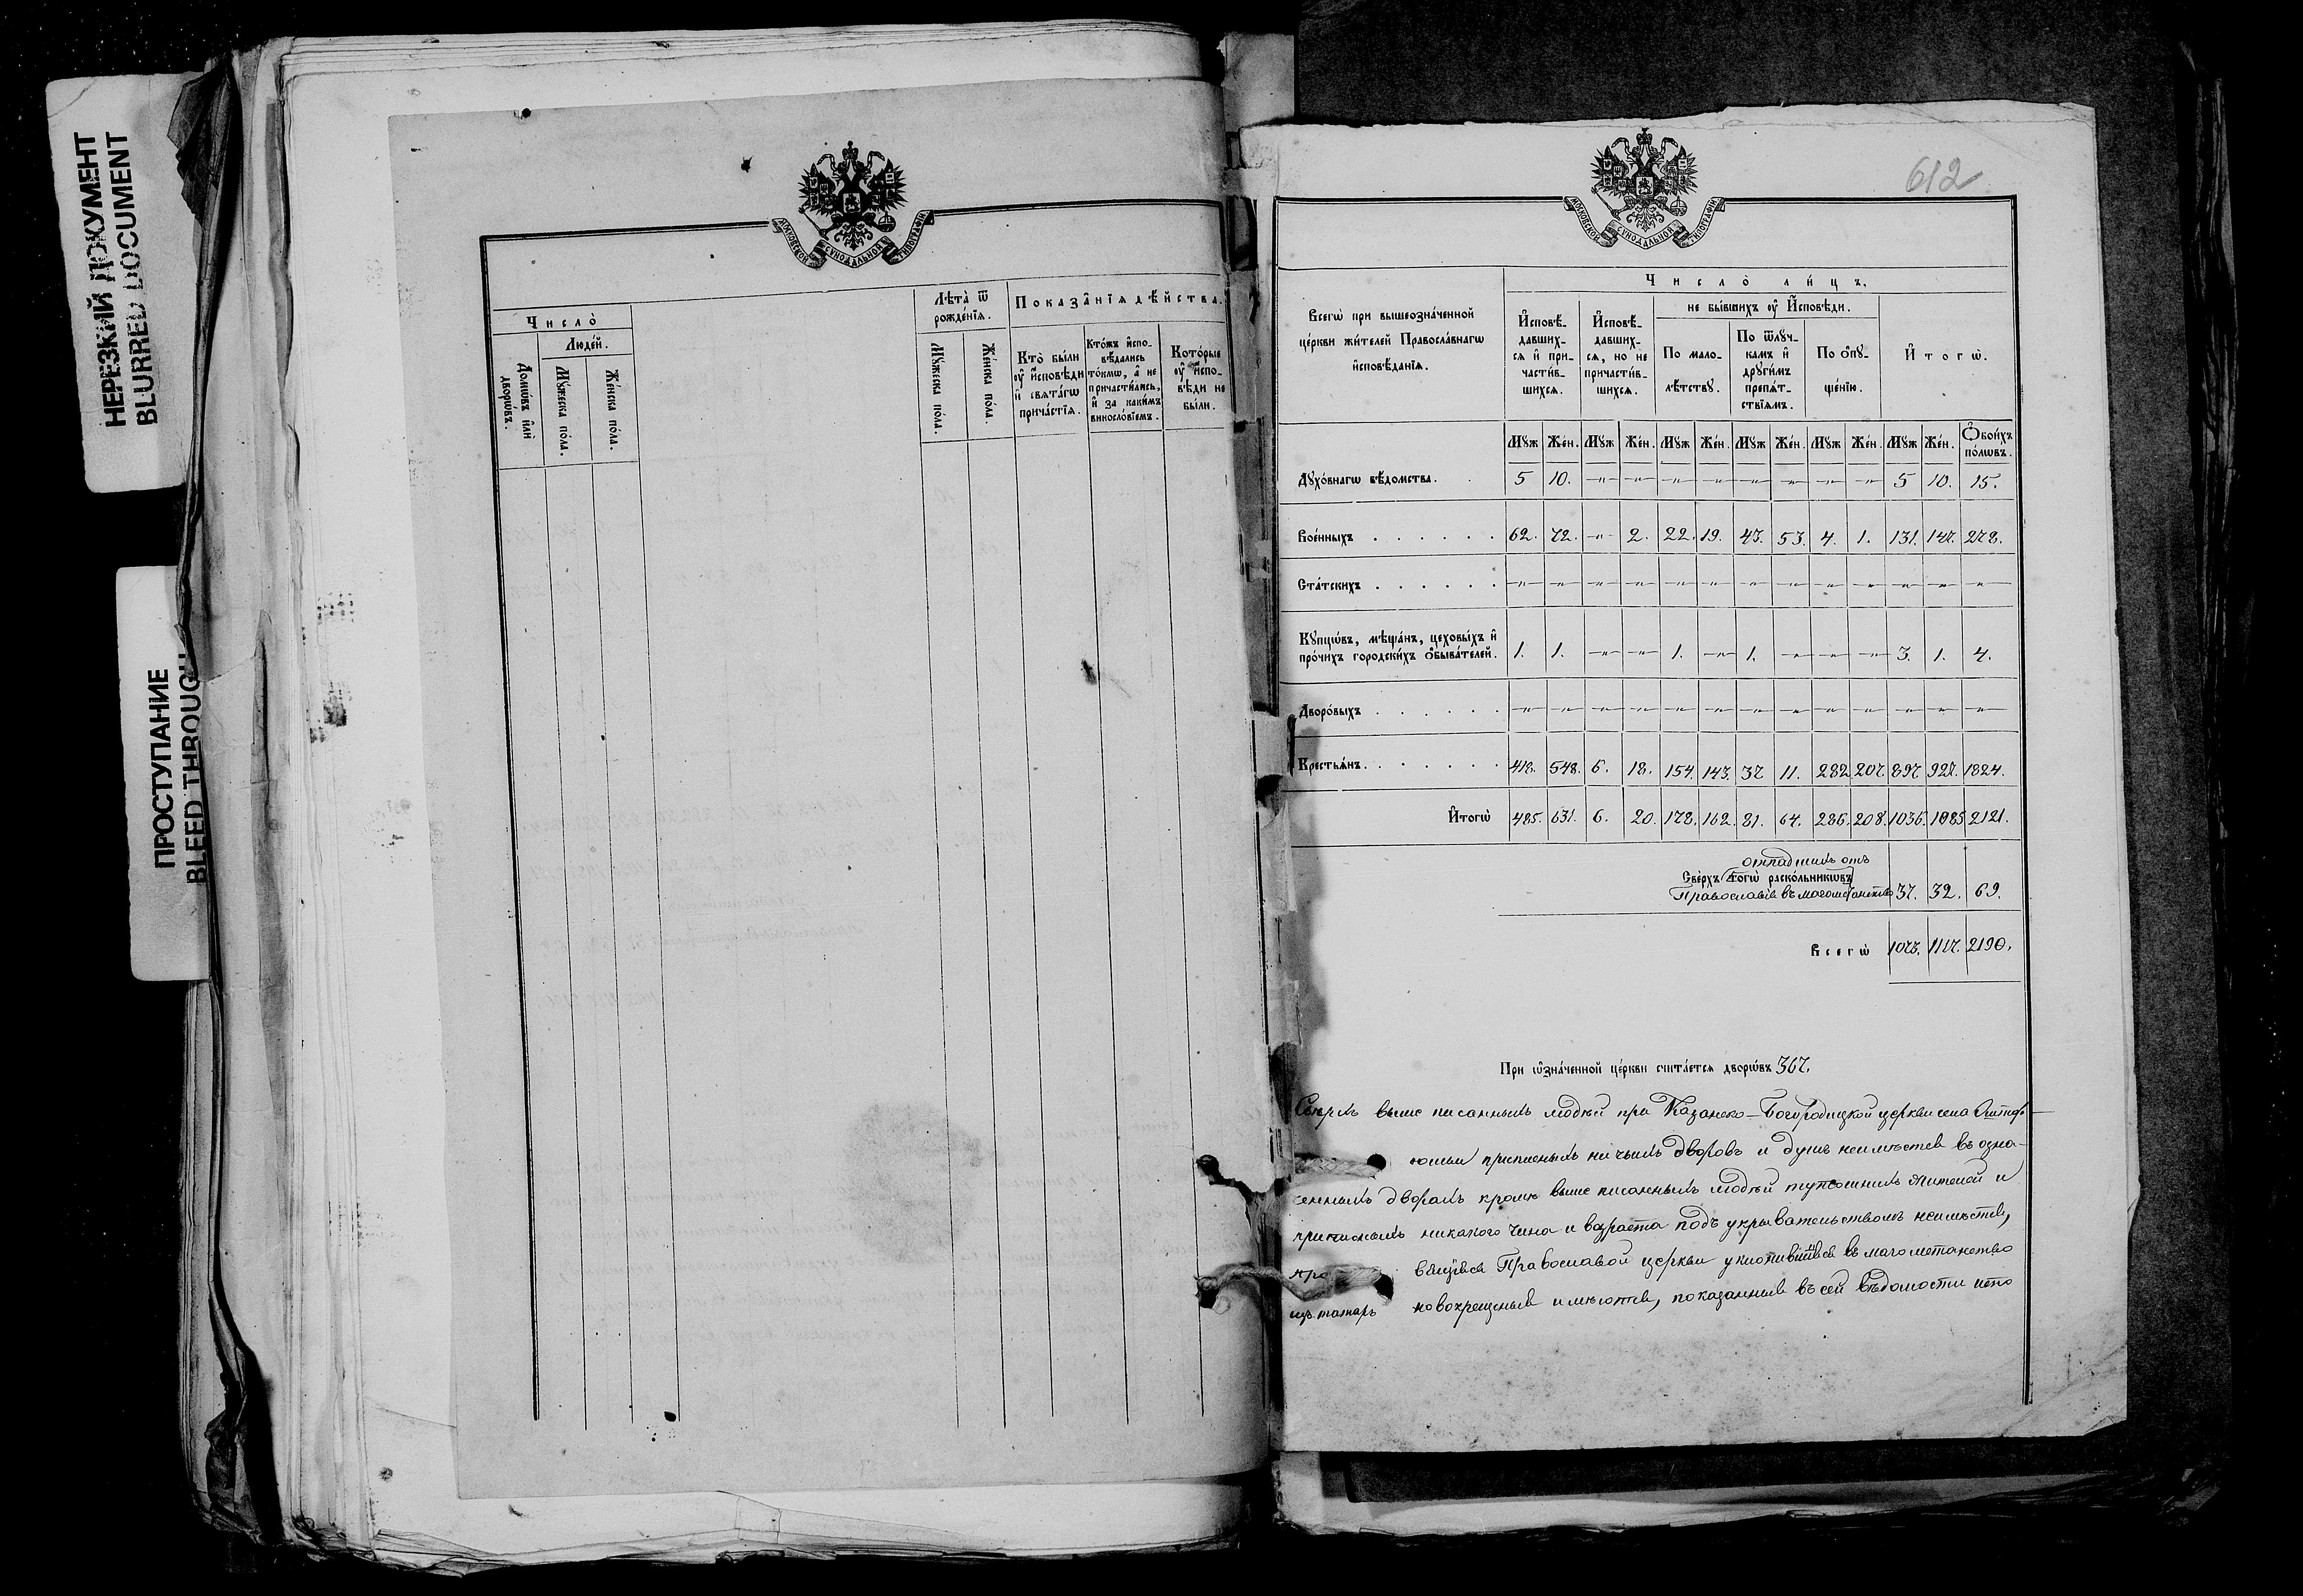 НЕРЕЗКИЙ ДОКУМЕНТ
BLURRED DOCUMENT
ПРОСТУПАНИЕ
BLEED THROUGH
МОСКОВСКОЙ СѴНОДАЛЬНОЙ ТИПОГРАФІИ
Число̀
Людéй.
Домѡ́въ и҆лѝ дворѡ́въ.
Мꙋ́жеска по́ла.
Же́нска по́ла.
Лѣта̀ ѿ рожде́нїѧ.
Мꙋ́жеска по́ла.
Же́нска по́ла.
Показа̑нїѧ дѣ́йства.
Кто̀ бы́ли ᲂу҆ и҆сповѣ́ди и҆ свѧта́гѡ прича́стїѧ.
Кто́жъ и҆спо-
вѣ́дались
то́кмѡ, а҆ не
причасти́лись,
и҆ за каки́мъ
винослó­вїемъ.
Кото́рые
ᲂу҆ и҆спо-
вѣ́ди не
бы́ли.
612
МОСКОВСКОЙ СѴНОДАЛЬНОЙ ТИПОГРАФІИ
Всегѡ̀ при вышеозна́ченной
це́ркви жи́телей Правосла́внагѡ
и҆сповѣ́данїѧ.
Число̀ ли́цъ.
И҆сповѣ́-
давших-
сѧ и҆ при-
части́в-
шихсѧ.
И҆сповѣ́-
давших-
сѧ, но не
причасти́в-
шихсѧ.
не бы́вшихъ ᲂу҆ И҆сповѣ́ди.
По мало-
лѣ́тствꙋ.
По ѿлꙋч-
камъ и҆
дрꙋги́мъ
препѧ́т-
ствїѧмъ.
По ѻ҆пꙋ-
ще́нїю.
И҆тогѡ̀.
Мꙋж Же́н. Мꙋж Же́н. Мꙋж Же́н. Мꙋж Же́н. Мꙋж Же́н. Мꙋж Же́н. Ѻ҆бои́хъ по́лѡвъ.
Дꙋхо́внагѡ вѣ́домства. 5 10. -„- -„- -„- -„- -„- -„- -„- -„- 5 10. 15.
Вое́нныхъ . . . . . . 62. 72. -„- 2. 22. 19. 43. 53. 4. 1. 131. 147. 278.
Ста́тскихъ . . . . . . -„- -„- -„- -„- -„- -„- -„- -„- -„- -„- -„- -„- -„-
Кꙋпцѡ́въ, мѣща́нъ, цеховы́хъ и҆
про́чихъ городски́хъ ѻ҆быва́телей. 1. 1. -„- -„- 1. -„- 1. -„- -„- -„- 3. 1. 4.
Дворо́выхъ . . . . . . -„- -„- -„- -„- -„- -„- -„- -„- -„- -„- -„- -„- -„-
Крестьѧ́нъ. . . . . . . 418. 548. 6. 18. 154. 143. 37 11. 282 207. 897 927. 1824.
И҆тогѡ̀ 485. 631. 6. 20. 178. 162. 81. 64. 286. 208. 1036. 1085 2121.
отпадшихъ отъ
Све́рхъ тогѡ̀ раско́льникѡвъ
Православія въ магометанство 37. 32. 69.
Всегѡ̀ 1073. 1117. 2190.
При ѡ҆зна́ченной це́ркви счита́етсѧ дворѡ́въ 367.
Сверхъ выше писанныхъ людѣй при Казанско-Богородицкой церкви села
приписныхъ ничьихъ дворовъ и душъ неимѣется въ озна-
ченныхъ дворахъ кромѣ выше писанныхъ людѣй жителей и
никакого чина и возраста подъ укрывательствомъ неимѣется,
Православной церкви въ магометанство
изъ татаръ новокрещеныя имѣются, показанныя въ сей вѣдомости